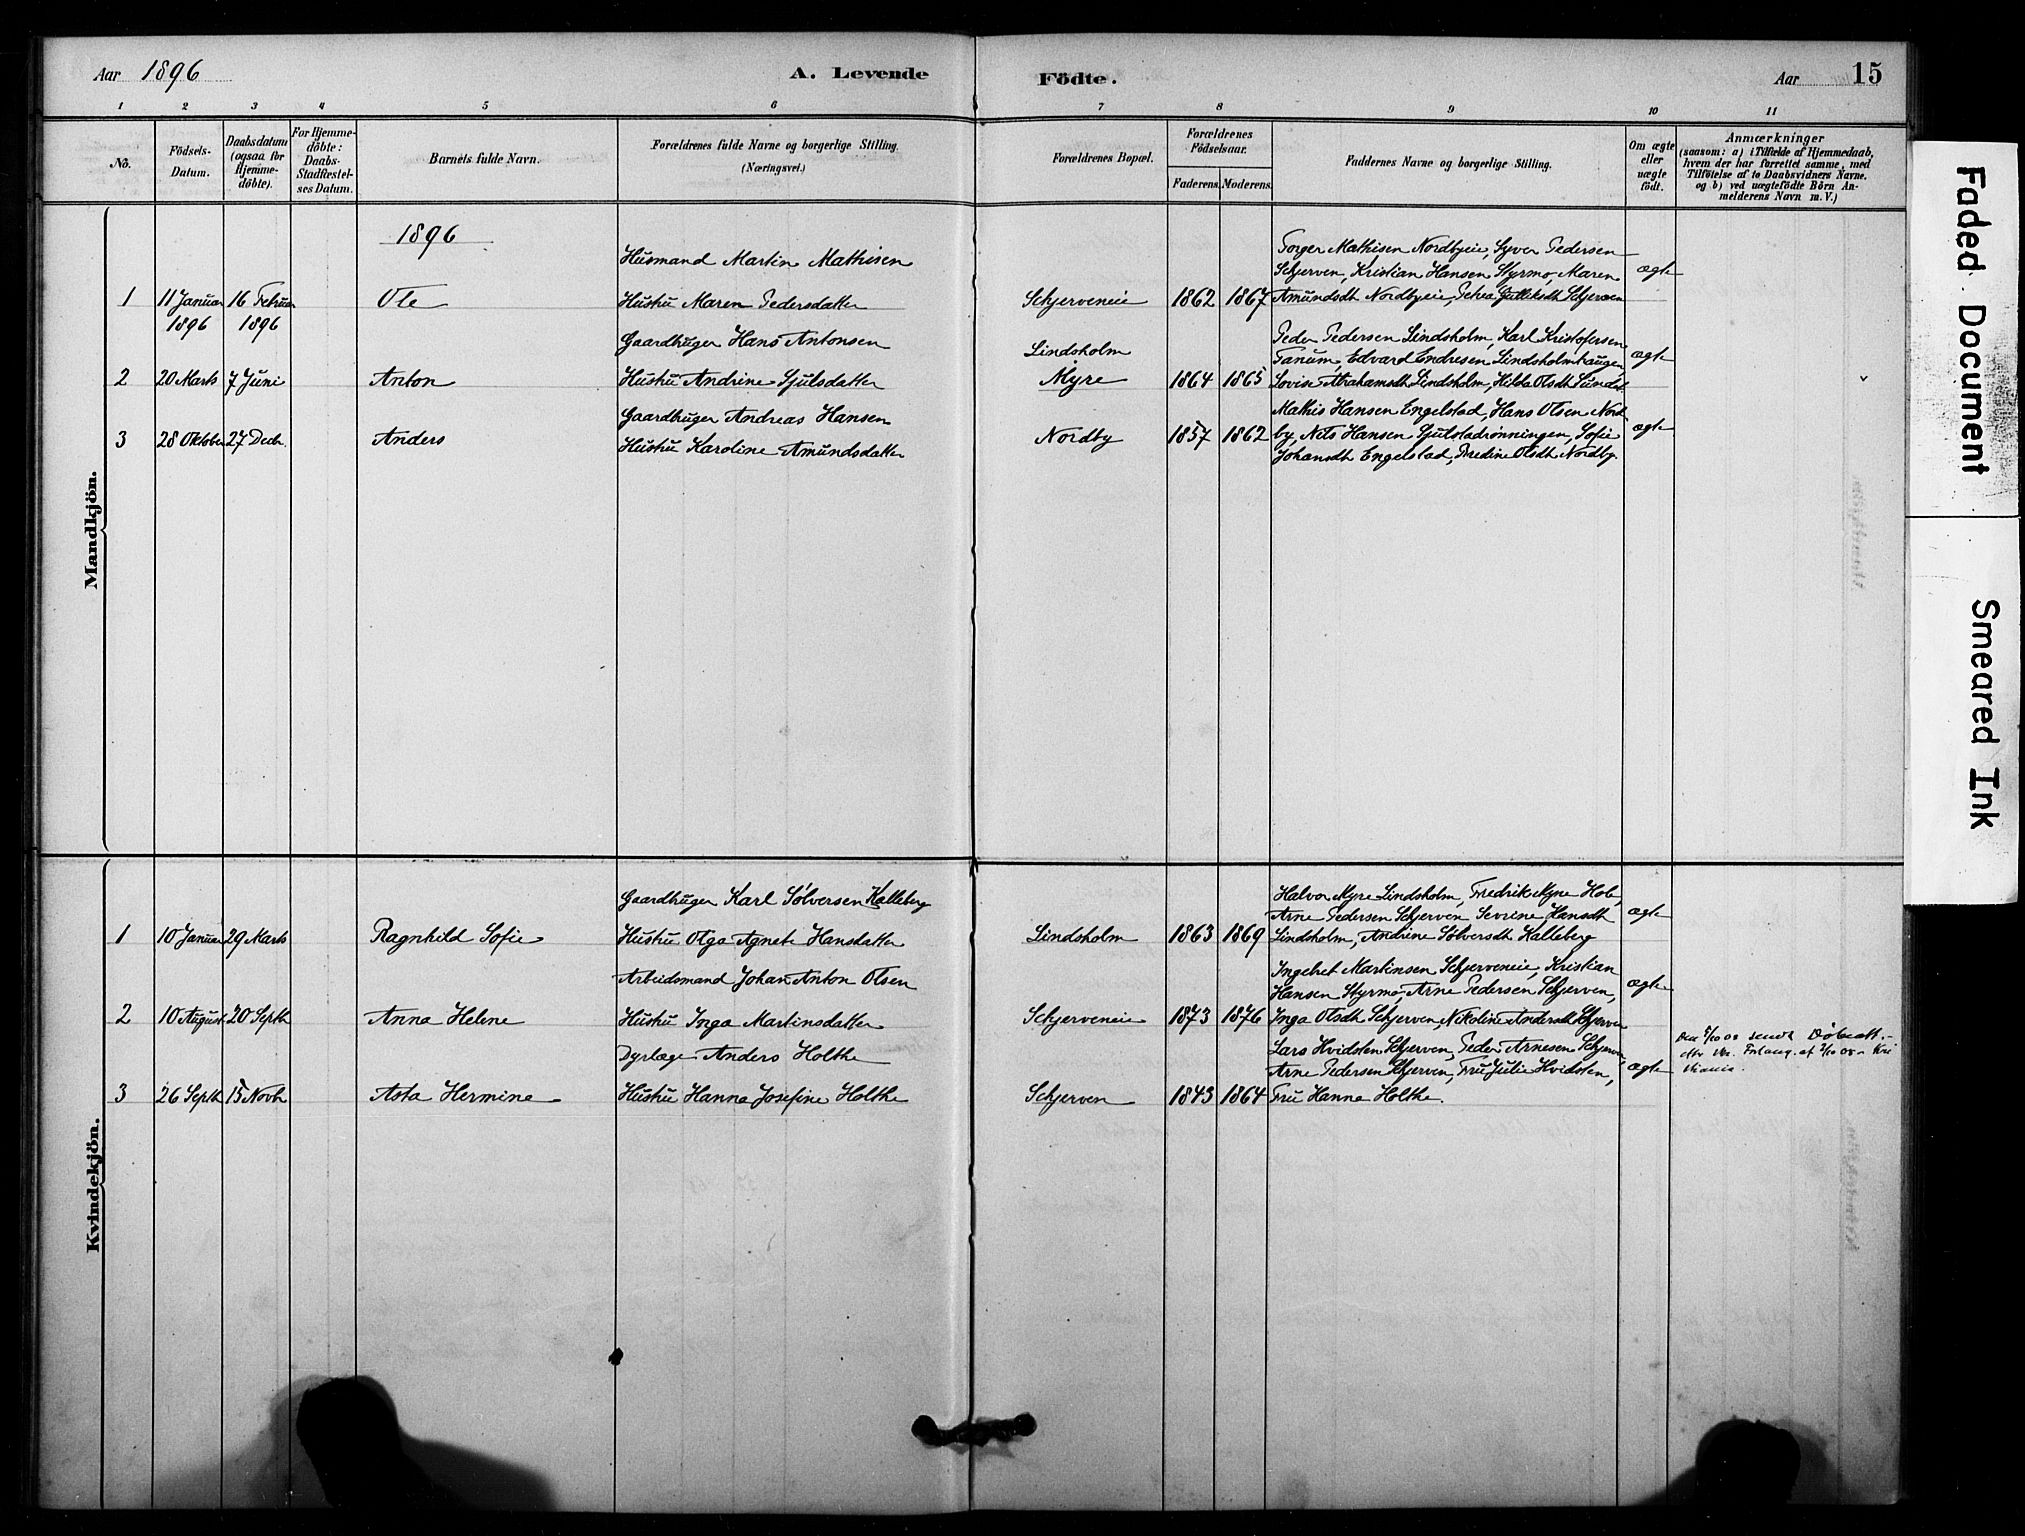 Aar 1896 A. Levende Födte. Aar 15
1 2 3 4 5 6 7 8 9 10 11
No.
Födsels-
Datum.
Daabsdatum
(ogsaa for
Hjemme-
döbte).
For Hjemme-
döbte:
Daabs-
Stadfæstel-
ses Datum.
Barnets fulde Navn.
Forældrenes fulde Navne og borgerlige Stilling.
(Næringsvei.)
Forældrenes Bopæl.
Forældrenes
Födselsaar.
Faderens. Moderens.
Faddernes Navne og borgerlige Stilling.
Om ægte
eller
uægte
födt.
Anmærkninger
(saasom: a) i Tilfælde af Hjemmedaab,
hvem der har forrettet samme, med
Tilföielse af to Daabsvidners Navne.
og b) ved uægtefödte Börn An-
melderens Navn m. V.)
Mandkjön.
1896
Husmand Martin Mathisen
Torger Mathisen Nordbyeie, Syver Pedersen
Schjerven, Kristian Hansen Styrmo, Maren ægte
1 11 Januar 16 Februar Ole Hustru Maren Pedersdatter Schjerveneie 1862 1867 Amundsdt Nordbyeie, Petrea Gulliksdt Schjerven
1896 1896
Gaardbruger Hans Antonsen Lindsholm
Peder Pedersen Lindsholm, Karl Kristofersen
Tanum, Edvard Endresen Lindsholmhaugen, ægte
2 20 Marts 7 Juni Anton Hustru Andrine Sjulsdatter Myre 1864 1865 Lovise Abrahamsdt Lindsholm, Hilda Olsdt Sundet
Gaardbruger Andreas Hansen
Mathis Hansen Engelstad, Hans Olsen Nord
3 28 Oktober 27 Decbr. Anders Hustru Karoline Amundsdatter Nordby 1857 1862 by, Nils Hansen Sjulstadrønningen, Sofie ægte
Johansdt Engelstad, Fredine Olsdt Nordby.
Kvindekjön.
Gaardbruger Karl Sølversen Kalleberg
Halvor Myre Lindsholm, Fredrik Myre Hob,
Arne Pedersen Schjerven Sevrine Hansdt ægte
1 10 Januar 29 Marts Ragnhild Sofie Hustru Olga Agnete Hansdatter Lindsholm 1863 1869 Lindsholm, Andrine Sølversdt Kalleberg
Arbeidsmand Johan Anton Olsen
Ingebret Martinsen Schjerveneie, Kristian
Hansen Styrmo, Arne Pedersen Schjerven, ægte
2 10 August 20 Septb Anna Helene Hustru Inga Martinsdatter Schjerveneie 1873 1876 Inga Olsdt Schjerven, Nikoline Andersdt Schjerven
Dyrlæge Anders Holthe
Lars Hvidsten Schjerven, Peder Arnesen Schjerven,
Arne Pedersen Schjerven, Fru Julie Hvidsten, ægte
3 26 Septb 15 Novb Asta Hermine Hustru Hanna Josefine Holthe Schjerven 1843 1864 Fru Hanna Holthe.
sendt Døbeatt.
Faded Document
Smeared Ink